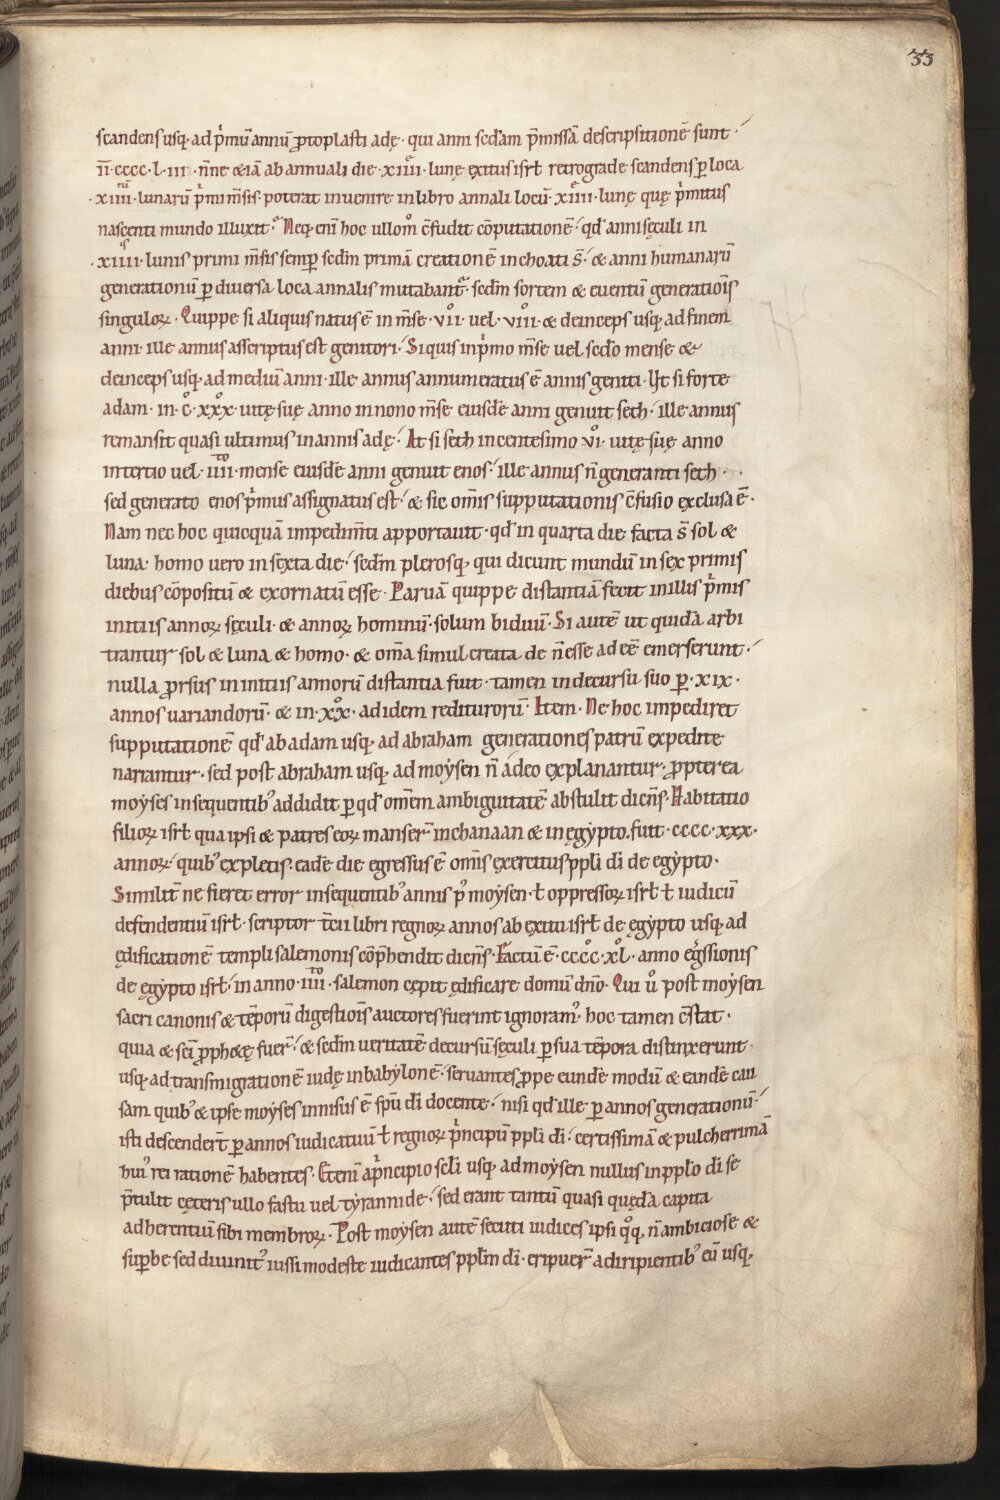 33
scandens usq; ad p'mū annū ꝓtoplasti adę · qui anni scđam p̄missā descripsitionē sunt ·
īī · cccc · l · iii · n̄ne &iā ab annuali die · xiiii · lunę exitus isrł retrograde scandens ꝑ loca
· xiiii · lunarū p'mi m̄sis · poterat inuenire in libro annali locū · xiiii · lunę quę p'mitus
nascenti mundo illuxit · Neq; eni hoc ullomͦ c̄fudit cōputationē · qđ anni sęculi in
· xiiii · lunis primi m̄sis semꝑ scđm primā creationē inchoati s̄ · & anni humanarū
generationū ꝑ diuersa loca annalis mutabant᷑ · scđm sortem & euentū generatiōis
singuloꝝ · Quippe si aliquis natus ē in m̄se · viiͦ · vel · viiiͦ · & deinceps usq; ad finem
anni · ille annus asscriptus est genitori · Si quis in p'mo m̄se vel scđo mense &
deinceps usq; ad mediū anni · ille annus annumeratus ē annis geniti · Ut si forte
adam · in · cͦ · xxxͦ · uitę suę anno in nono m̄se eiusdē anni genuit seth · ille annus
remansit quasi ultimus in annis adę · At si seth in centesimo vͦi · uitę suę anno
in tertio vel · iiiiͭͦ · mense eiusdē anni genuit enos · ille annus n̄ generanti seth ·
sed generato enos p'mus assignatus est · & sic om̄is supputationis c̄fusio exclusa ē ·
Nam nec hoc quicquā impedim̄ti apportauit · qđ in quarta die facta s̄ sol &
luna · homo uero in sexta die · scđm plerosq; qui dicunt mundū in sex primis
diebus cōpositū & exornatū esse · Paruā quippe distantiā fecit in illis p'mis
initiis annoꝝ sęculi · & annoꝝ hominū · solum biduū · Si autē ut quidā arbi
trantur sol & luna & homo · & om̄a simul creata de n̄ esse ad eē emerserunt ·
nulla ꝓrsus in initiis annorū distantia fuit · tamen in decursu suo ꝑ · xix ·
annos uariandorū · & in · xxͦ · ad idem rediturorū · Item · Ne hoc impediret
supputationē qđ ab adam usq; ad abraham generationes patrū expedite
narrantur · sed post abraham usq; ad moẏsen n̄ adeo explanantur · ꝓpterea
moẏses in sequentib' addidit ꝑ qđ om̄em ambiguitatē abstulit dicn̄s · Habitatio
filioꝝ isrł qua ipsi & patres eoꝝ manser̄ in chanaan & in ęgẏpto · fuit · cccc · xxx ·
annoꝝ · quib' expletis · eadē die egressus ē om̄is exercitus ppłi di̅ de egẏpto ·
Similit̄ ne fieret error in sequentib' annis p' moẏsen · ł oppressoꝝ isrł ł iudicū
defendentiū isrł · scriptor t̄cii libri regnoꝝ annos ab exitu isrł de ęgẏpto usq; ad
ędificationē templi salemonis cōp̄hendit dicn̄s · Factū ē · ccccͦ · xͦl · anno eg'ssionis
de ęgẏpto isrł · in anno · iiiiͭͦ · salemon cępit ędificare domū dn̄o · Qui uͦ post moẏsen
sacri canonis & tēporū digestiōis auctores fuerint ignoram' · hoc tamen c̄stat ·
quia & sc̄i ꝓph&ę fuer̄ · & scđm ueritatē decursū sęculi ꝑ sua tēpora distinxerunt
usq; ad transmigrationē iudę in babẏlonē · seruantes ꝓpe eundē modū & eandē cau
sam quib' & ipse moẏses innisus ē sp̄u di̅ docente · nisi qđ ille ꝑ annos generationū ·
isti descender̄t ꝑ annos iudicatuū ł regnoꝝ p'ncipū ppłi di̅ · certissimā & pulcherrimā
hui' rei rationē habentes · Etenī a p'ncipio scłi usq; ad moẏsen nullus in ppło di̅ se
p̄tulit cęteris ullo fastu uel tẏrannide · sed erant tantū quasi quędā capita
adherentiū sibi membroꝝ · Post moẏsen autē secuti iudices ipsi qͦq; n̄ ambiciose &
suꝑbe sed diuinit' iussi modeste iudicantes ppłm di̅ · eripuer̄ a diripientib' eū usq;